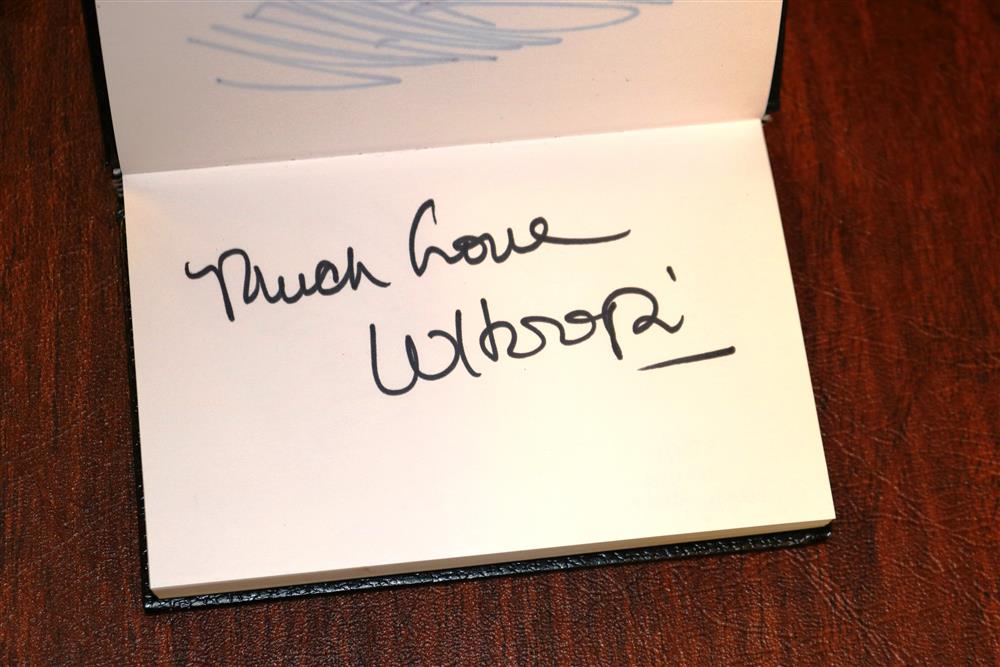 Much Love
Whoopi